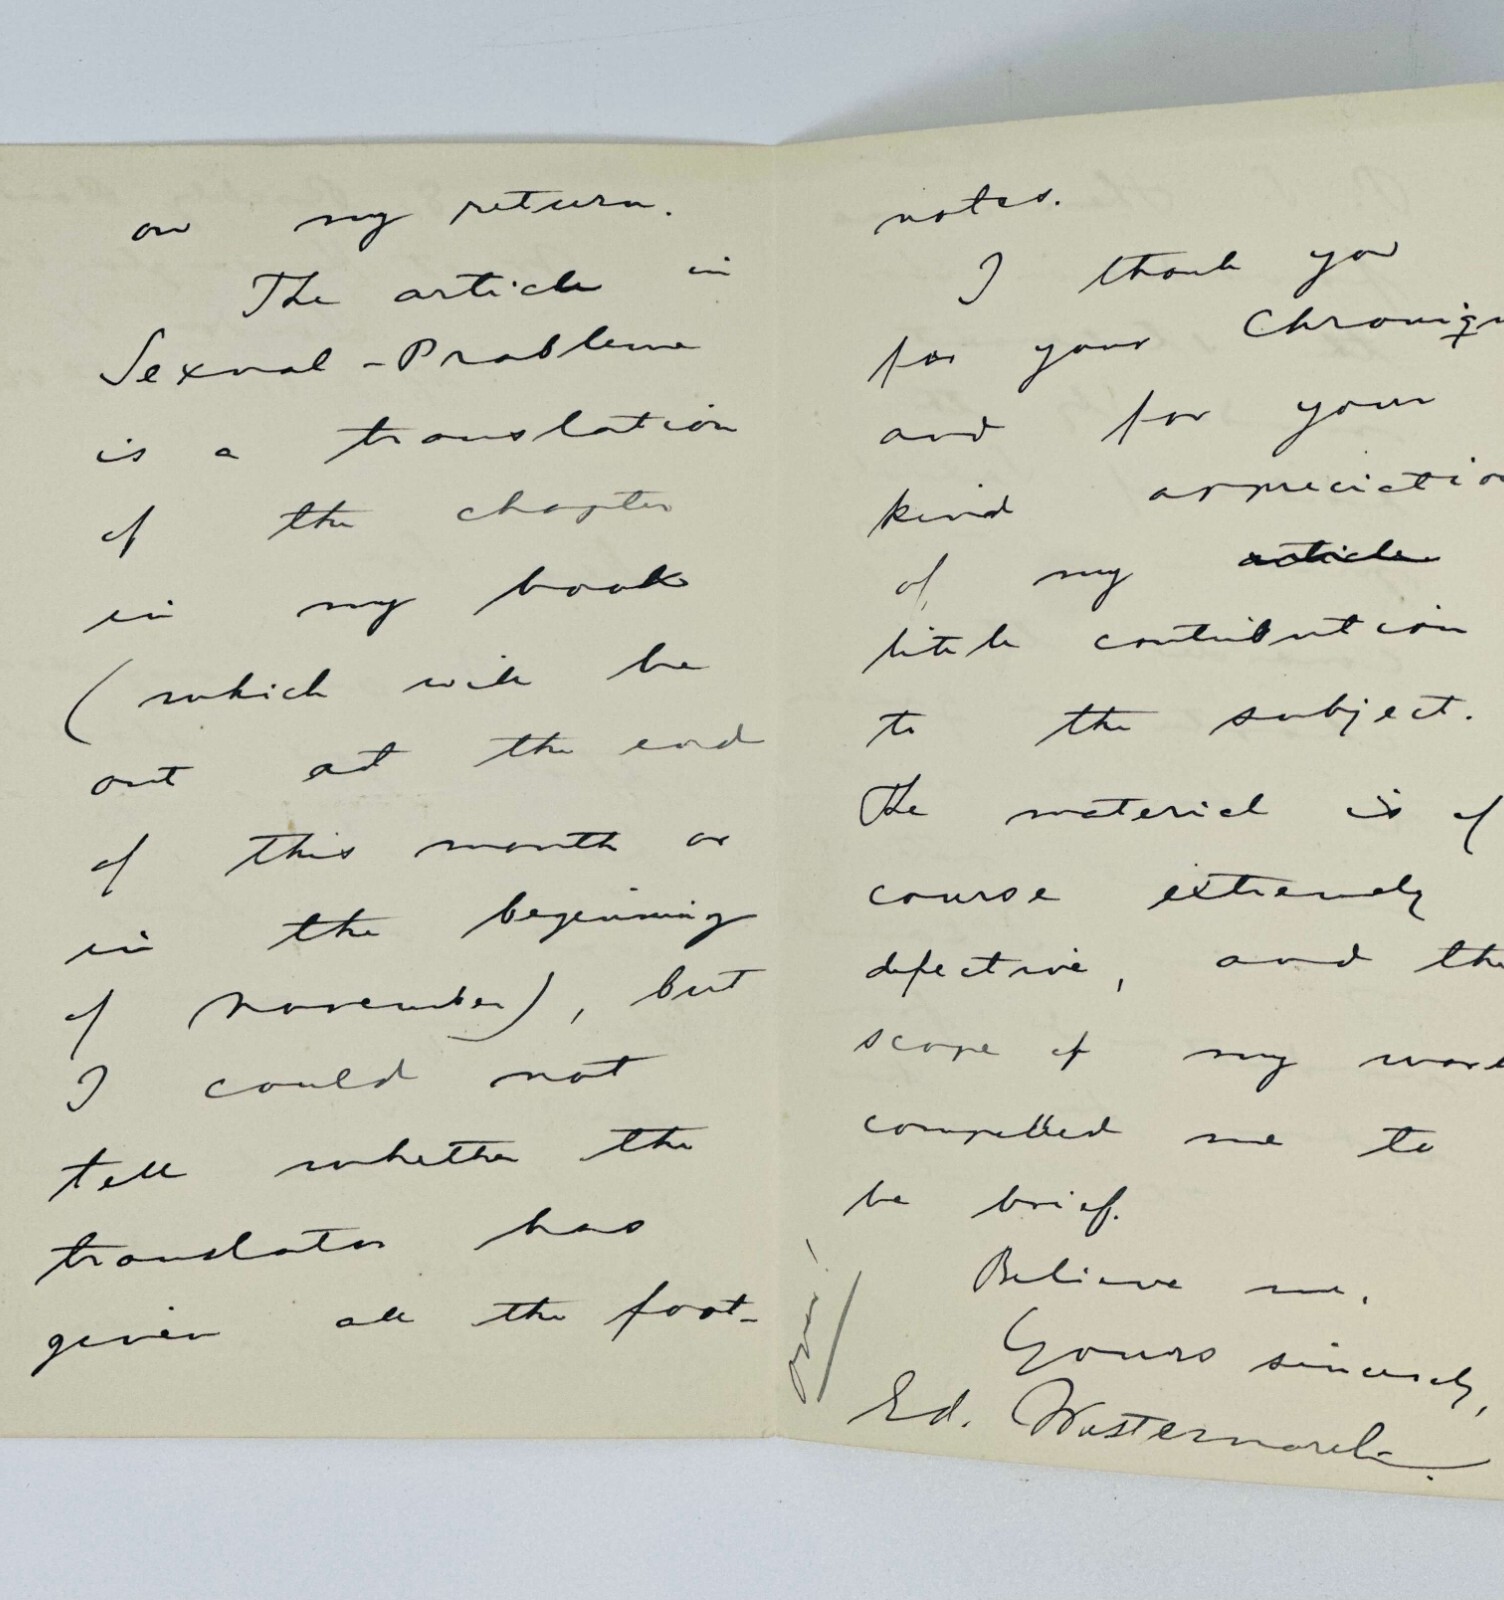 on my return.
The article in
Sexual-Probleme
is a translation
of the chapter
in my book
(which will be
out at the end
of this month or
in the beginning
of November), but
I could not
tell whether the
translator has
given all the foot-
notes.
I thank you
for your Chroniqu
and for your
kind appreciation
of my article
little contribution
to the subject.
The material is of
course extremely
defective, and the
scope of my work
compelled me to
be brief.
Believe me,
Yours sincerely,
Ed. Westermarck.
over!